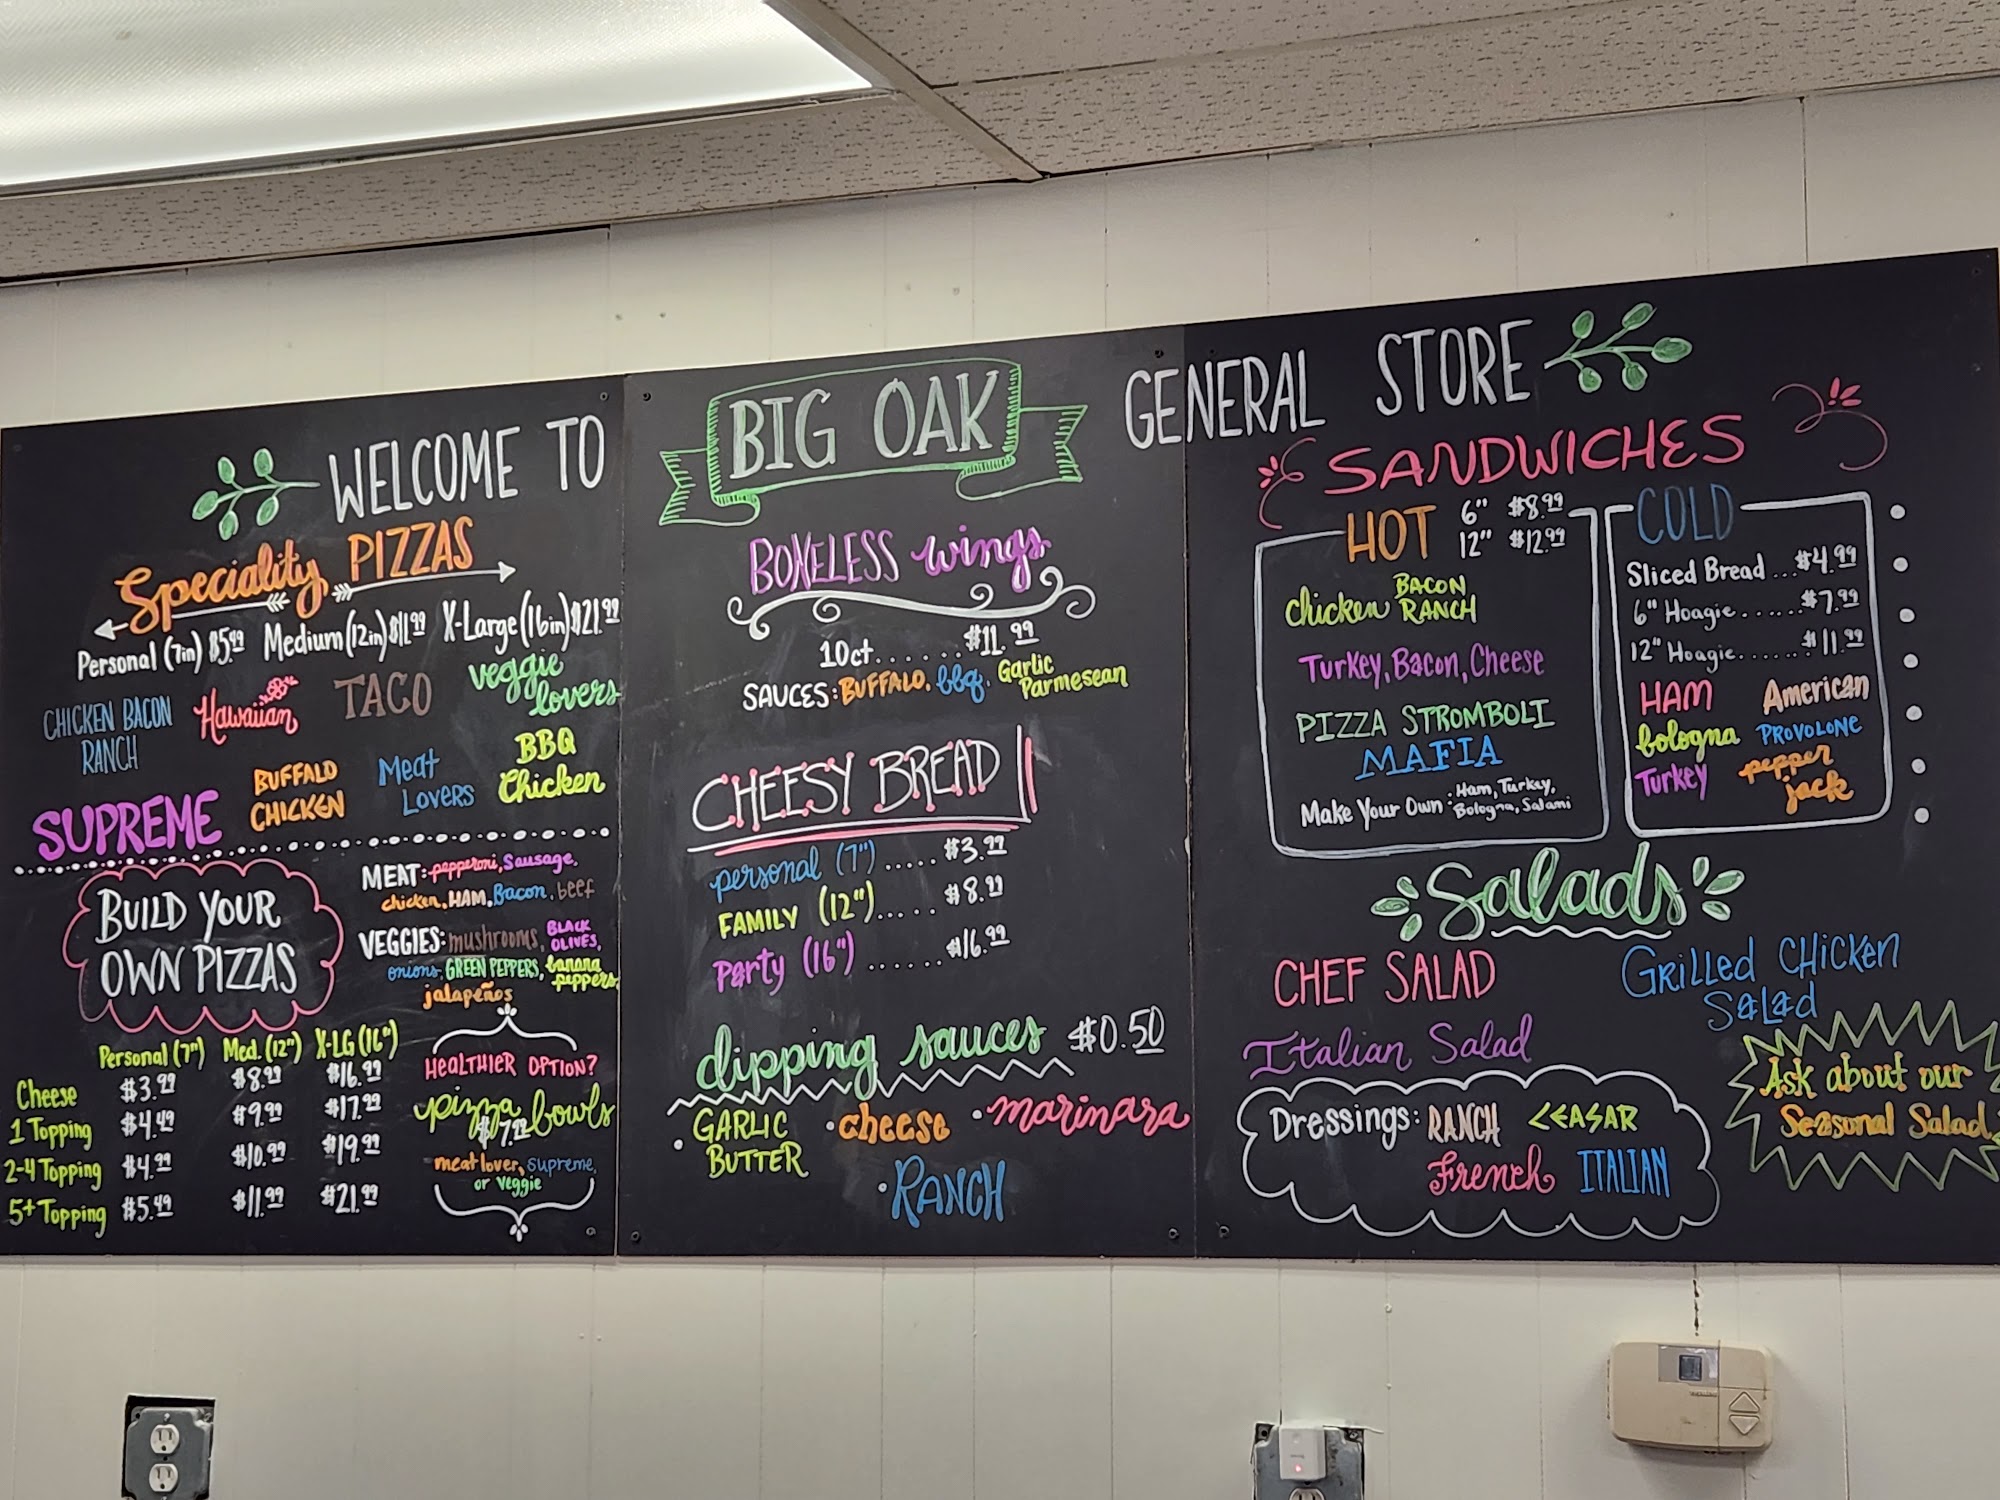 WELCOME TO BIG OAK GENERAL STORE
Speciality PIZZAS
Personal (7in) $5.49 Medium (12in) $11.99 X-Large (16in) $21.99
CHICKEN BACON RANCH
Hawaiian
TACO
veggie lovers
SUPREME
BUFFALO CHICKEN
Meat LOVERS
BBQ Chicken
BUILD YOUR
OWN PIZZAS
MEAT: pepperoni, Sausage,
chicken, HAM, Bacon, beef
VEGGIES: mushrooms, BLACK OLIVES,
onions, GREEN PEPPERS, banana peppers,
jalapeños
Personal (7") Med. (12") X-LG (16")
Cheese $3.99 $8.99 $16.99
1 Topping $4.49 $9.99 $17.99
2-4 Topping $4.99 $10.99 $19.99
5+ Topping $5.49 $11.99 $21.99
HEALTHIER OPTION?
pizza bowls
$7.99
meat lover, supreme,
or veggie
BONELESS wings
10ct.......$11.99
SAUCES: BUFFALO, bbq, Garlic Parmesean
CHEESY BREAD
personal (7")..... $3.99
FAMILY (12")..... $8.99
Party (16")...... $16.99
dipping sauces $0.50
• GARLIC BUTTER
• cheese
• marinara
• RANCH
SANDWICHES
HOT 6" $8.99
12" $12.99
chicken BACON RANCH
Turkey, Bacon, Cheese
PIZZA STROMBOLI
MAFIA
Make Your Own: Ham, Turkey,
Bologna, Salami
COLD
Sliced Bread...$4.99
6" Hoagie......$7.99
12" Hoagie......$11.99
HAM American
bologna PROVOLONE
Turkey pepper jack
Salads
CHEF SALAD
GRilled CHicKen SaLad
Italian Salad
Dressings: RANCH CEASAR
French ITALIAN
Ask about our
Seasonal Salads